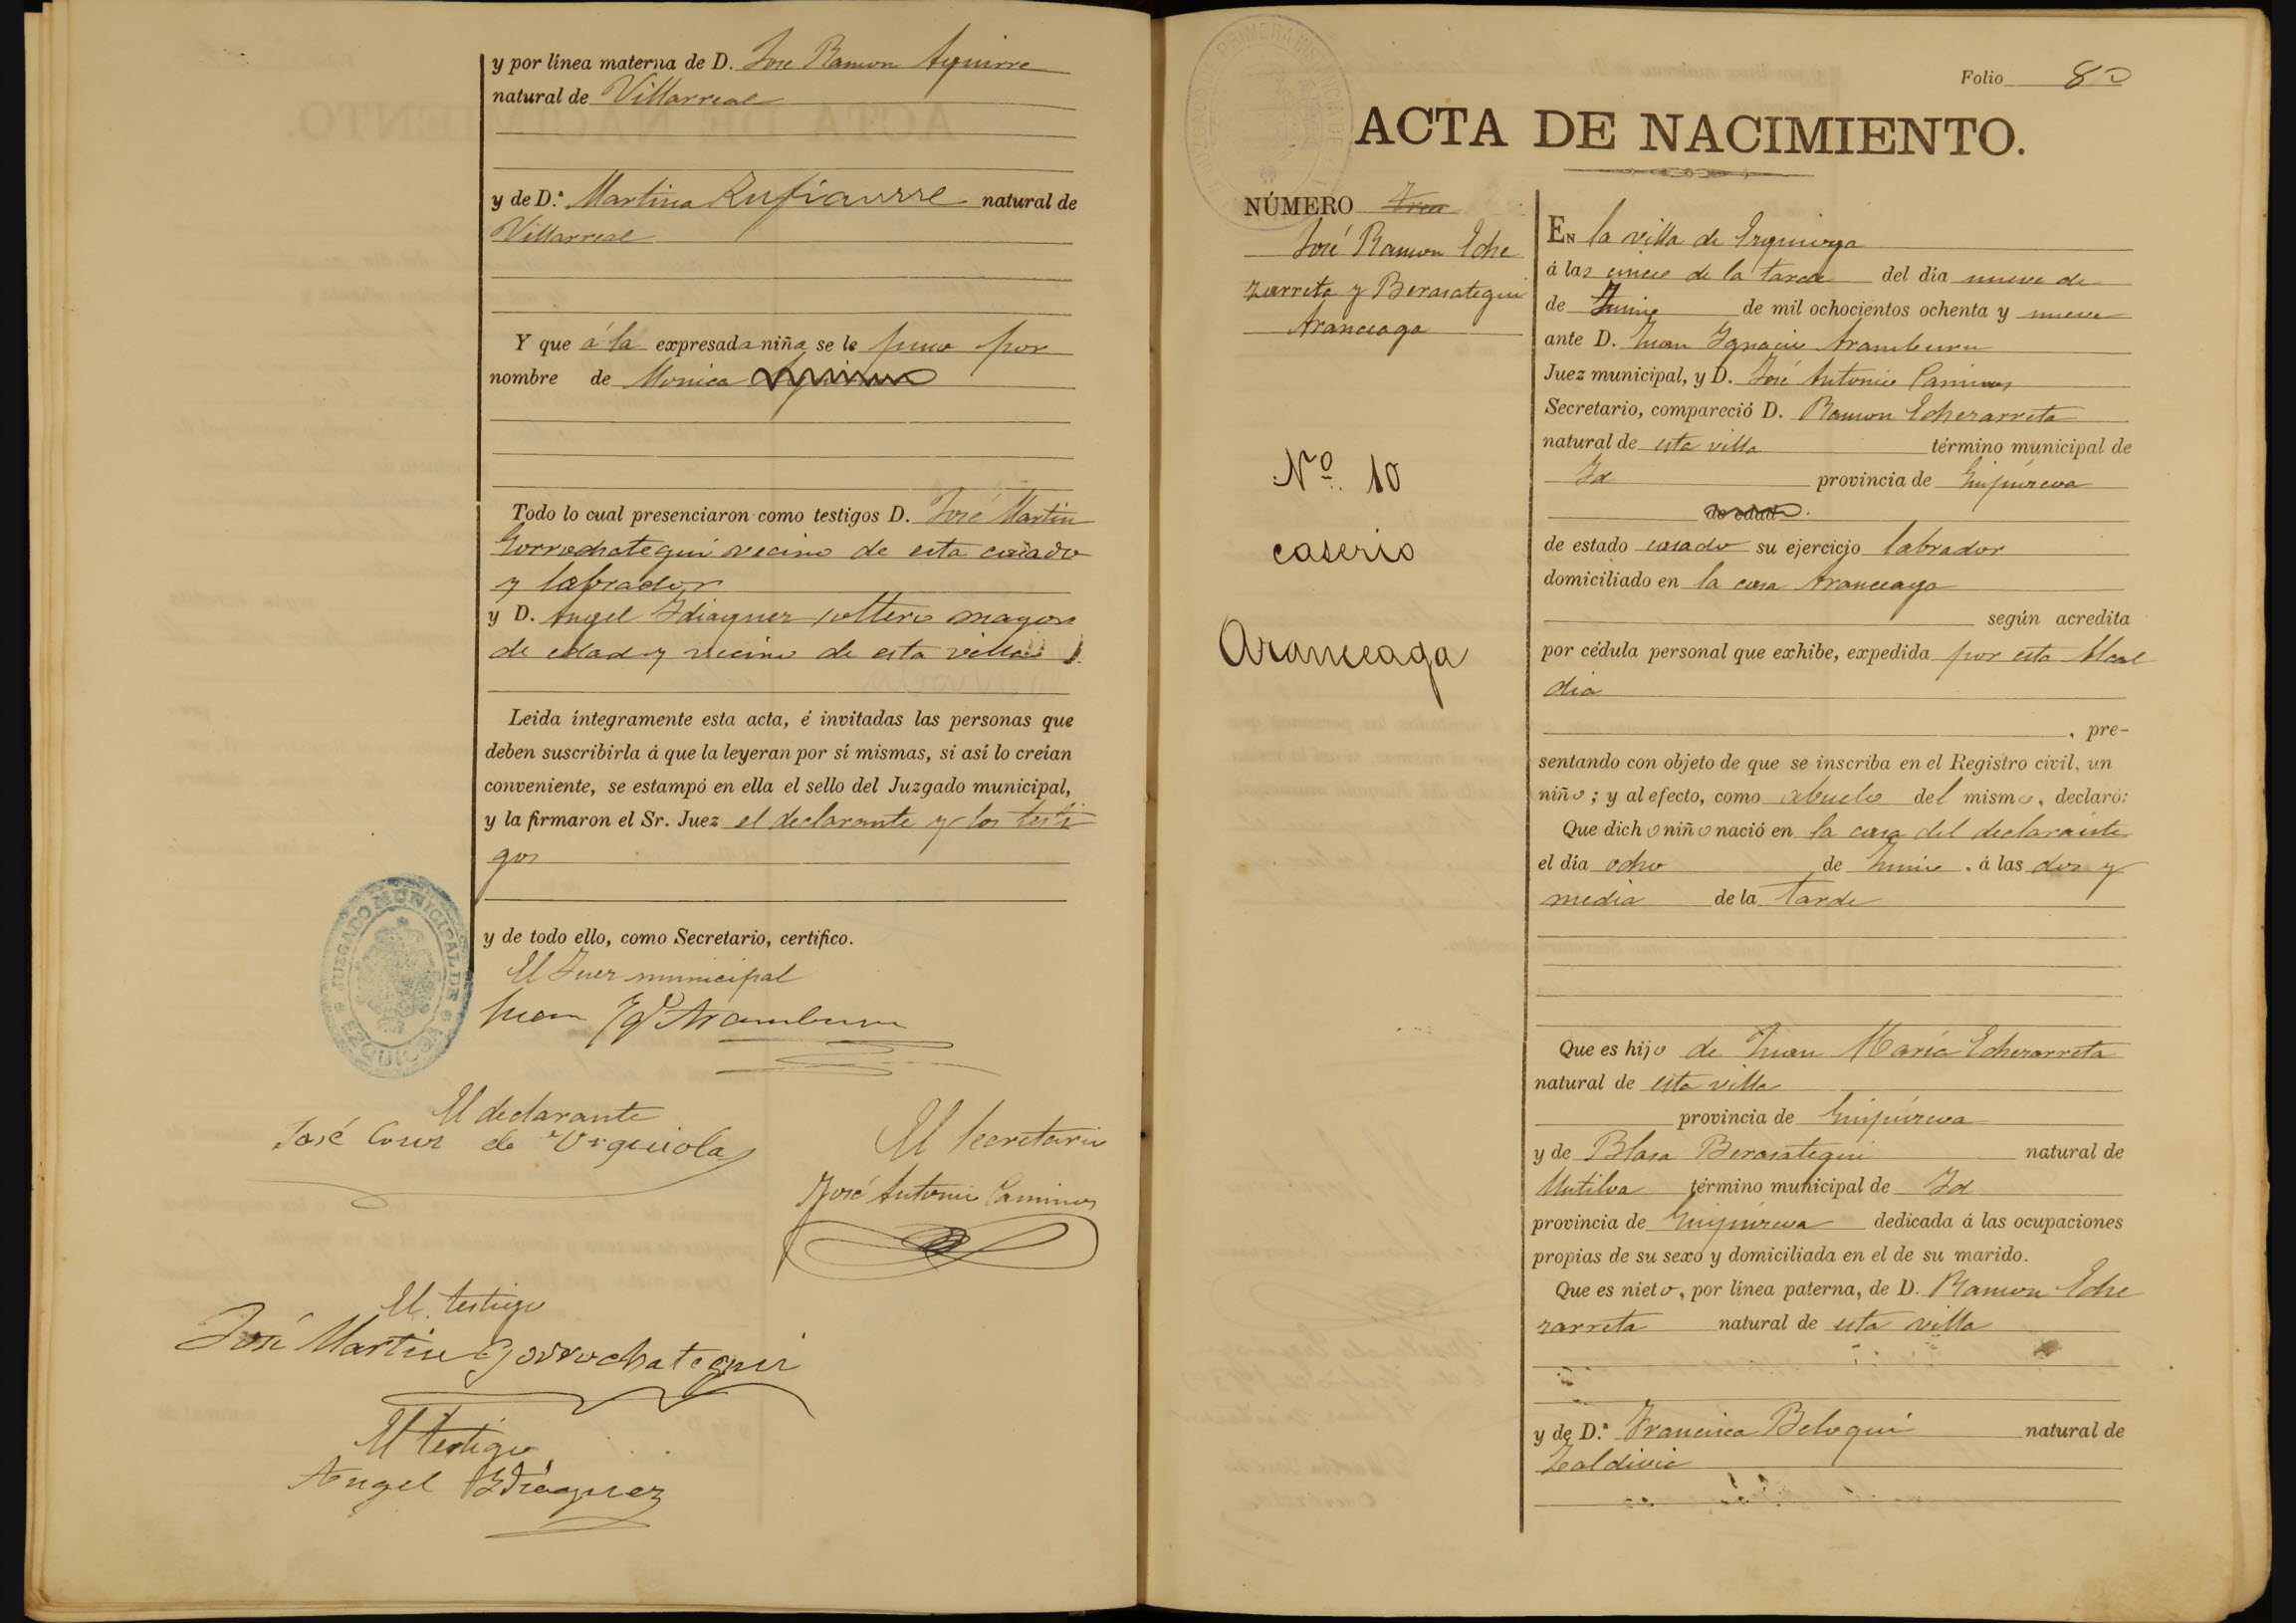 y por línea materna de D. Jose Ramon Aguirre
natural de Villarreal
y de D.ª Martina Zufiaurre natural de
Villarreal
Y que á la expresada niña se le puso por
nombre de Monica
Todo lo cual presenciaron como testigos D. José Martin
Gorrochategui vecino de esta casado
y labrador
y D. Angel Idiaquez soltero mayor
de edad y vecino de esta villa
Leida íntegramente esta acta, é invitadas las personas que
deben suscribirla á que la leyeran por sí mismas, si así lo creían
conveniente, se estampó en ella el sello del Juzgado municipal,
y la firmaron el Sr. Juez el declarante y los testi
gos
y de todo ello, como Secretario, certifico.
El Juez municipal
Juan Ig.º Aramburu
JUZGADO MUNICIPAL DE
EZQUIOGA
El declarante
José Cruz de Urquiola
El Secretario
José Antonio Caminos
El testigo
José Martin Gorrochategui
El testigo
Angel Idiaquez
Folio 80
ACTA DE NACIMIENTO.
NÚMERO
José Ramon Eche
zarreta y Berasategui
Aranceaga
Nº. 10
caserio
Aranceaga
EN la villa de Ezquioga
á las cinco de la tarde del dia nueve de
de Junio de mil ochocientos ochenta y nueve
ante D. Juan Ignacio Aramburu
Juez municipal, y D. José Antonio Caminos
Secretario, compareció D. Ramon Echezarreta
natural de esta villa término municipal de
Id provincia de Guipúzcoa
de edad
de estado casado su ejercicio labrador
domiciliado en la casa Aranceaga
según acredita
por cédula personal que exhibe, expedida por esta Alcal
dia
, pre-
sentando con objeto de que se inscriba en el Registro civil, un
niño; y al efecto, como abuelo del mismo, declaró:
Que dicho niño nació en la casa del declarante
el día ocho de Junio . á las dos y
media de la tarde
Que es hijo de Juan María Echezarreta
natural de esta villa
provincia de Guipúzcoa
y de Blasa Berasategui natural de
Mutiloa término municipal de Id
provincia de Guipúzcoa dedicada á las ocupaciones
propias de su sexo y domiciliada en el de su marido.
Que es nieto, por línea paterna, de D. Ramon Eche
zarreta natural de esta villa
y de D.ª Francisca Beloqui natural de
Zaldivia